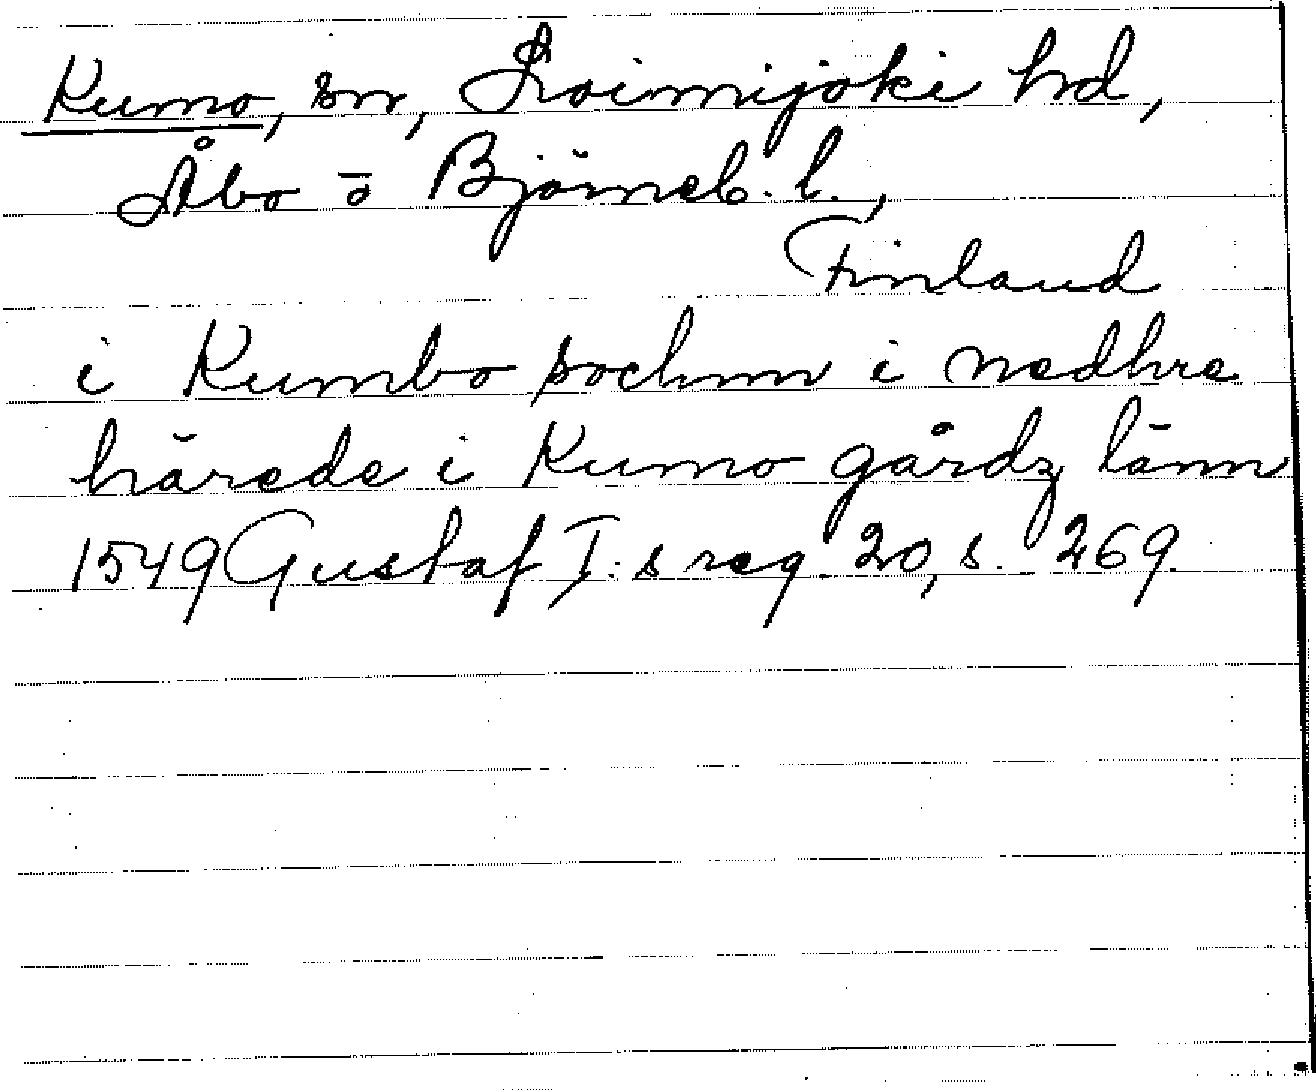 Kumo, sn, Loimijoki hd,
Åbo o Björneb. l.,
Finland
i Kumbo sochnn i nedhre
härede i Kumo gårdz länn
1549 Gustaf I:s reg 20, s. 269.